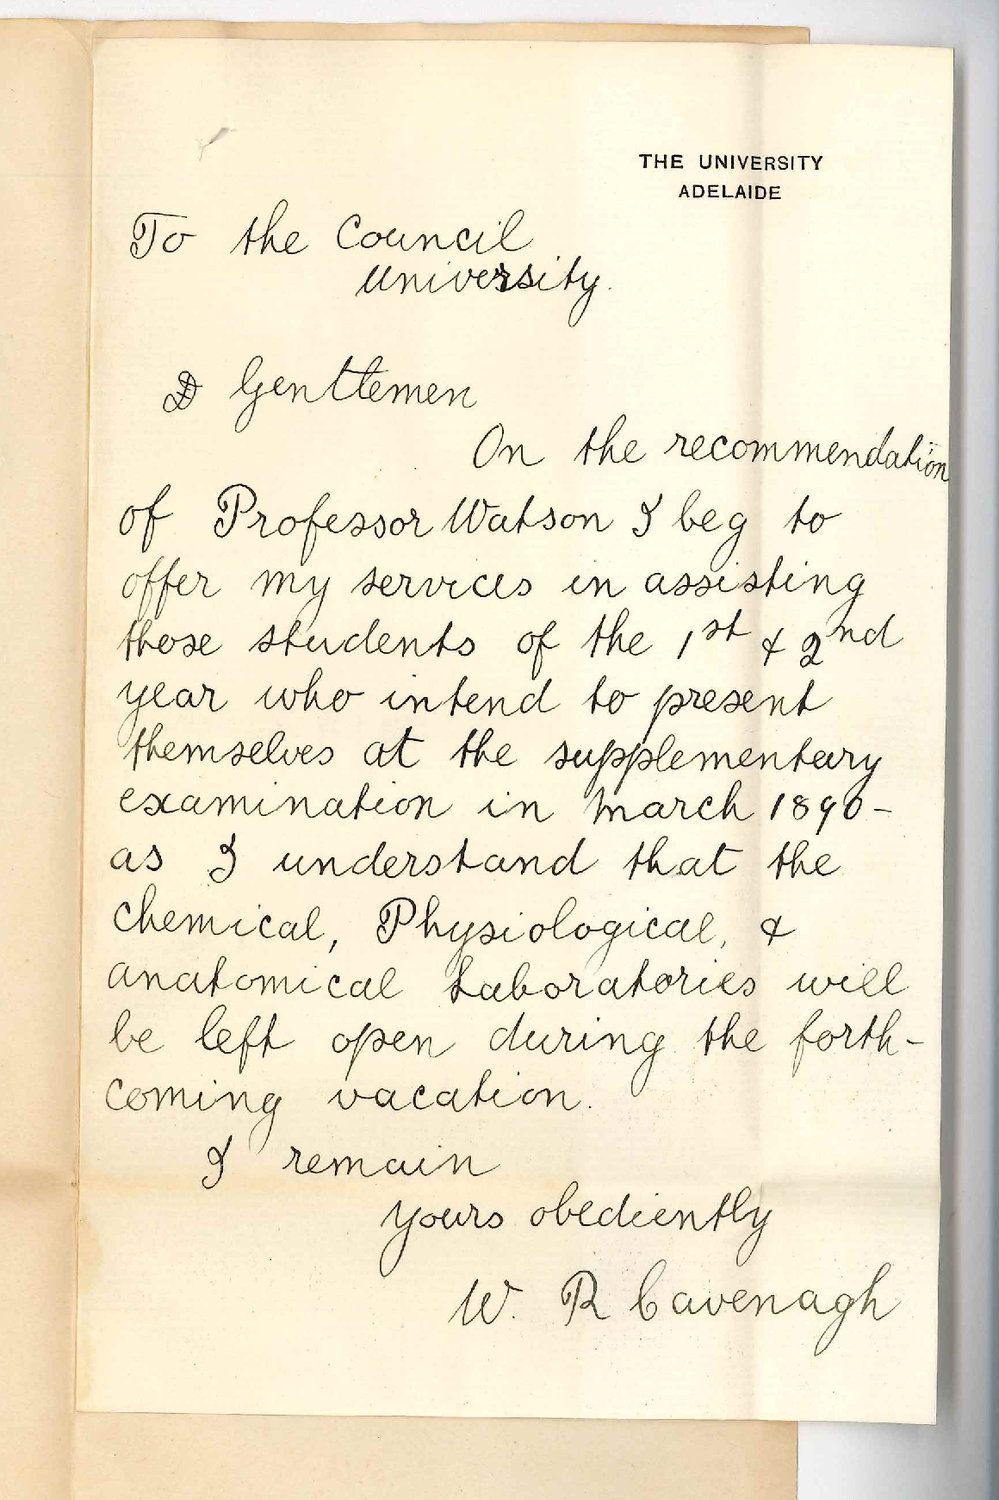 THE UNIVERSITY
ADELAIDE
To the Council
University.
Gentlemen
On the recommendation
of Professor Watson I beg to
offer my services in assisting
those students of the 1st & 2nd
year who intend to present
themselves at the supplementary
examination in March 1890-
as I understand that the
Chemical, Physiological, &
anatomical Laboratories will
be left open during the forth-
coming vacation.
I remain
Yours obediently
W. R Cavenagh